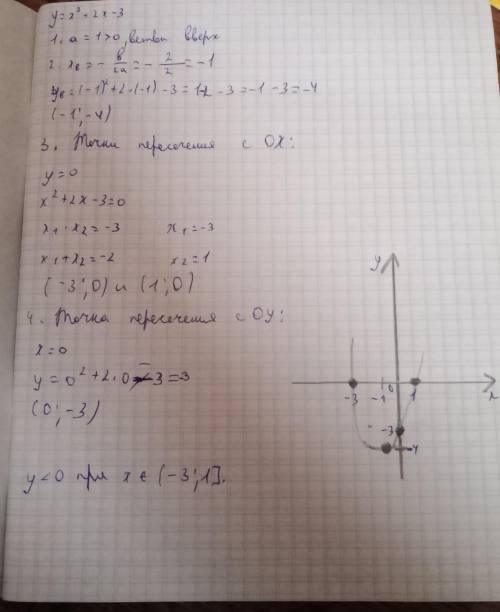 y=x³+2x-3
1. a=1>0, ветви вверх
2. xв = - в/2a = - 2/2 = -1
yв=(-1)²+2·(-1)-3=1-2-3=-1-3=-4
(-1;-4)
3. Точки пересечения с OX:
y=0
x²+2x-3=0
x₁·x₂=-3 x₁=-3
x₁+x₂=-2 x₂=1
(-3;0) и (1;0)
4. Точка пересечения с OY:
x=0
y=0²+2·0-3=3
(0;-3)
y<0 при x ∈ (-3;1].
y
-3 -1 0 1 x
-3
-4